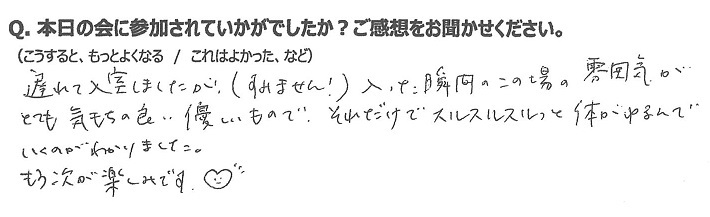 Q. 本日の会に参加されていかがでしたか？ご感想をお聞かせください。
（こうすると、もっとよくなる / これはよかった、など）
遅れて入室しましたが、(すみません!) 入った瞬間のこの場の雰囲気が
とても気もちの良い優しいもので、それだけでスルスルスルっと体がゆるんで
いくのがわかりました。
もう次が楽しみです♡